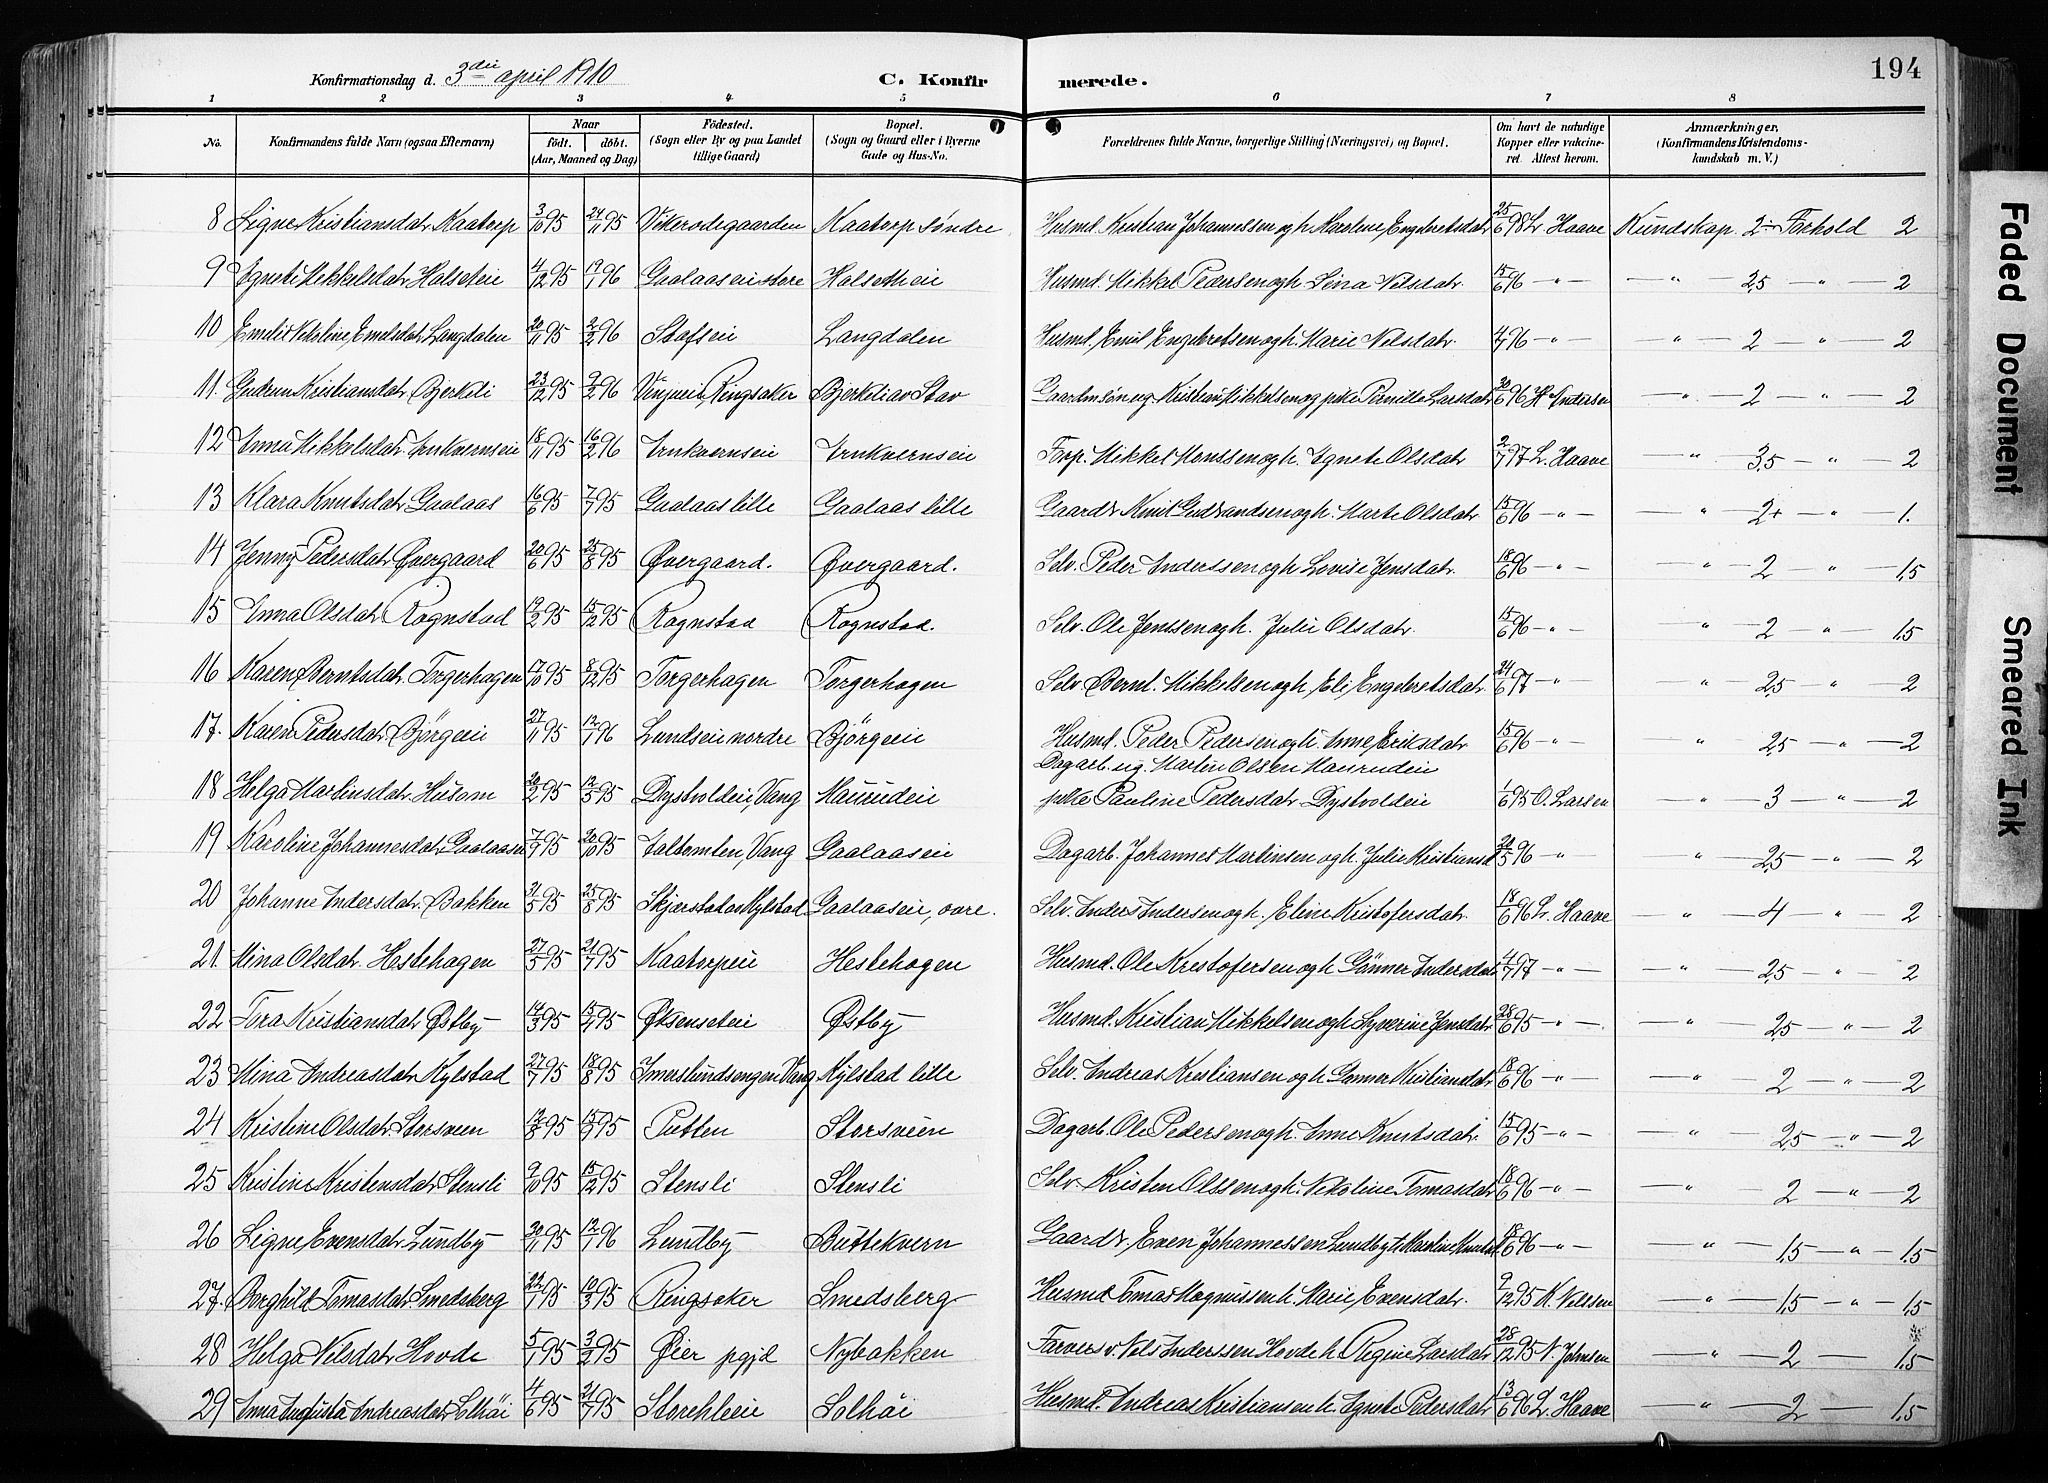 194
Konfirmationsdag d. 3die april 1910 C. Konfirmerede.
1 2 3 4 5 6 7 8
No. Konfirmandens fulde Navn (ogsaa Efternavn) Naar født. døbt. (Aar, Maaned og Dag) Fødested. (Sogn eller By og paa Landet tillige Gaard) Bopæl. (Sogn og Gaard eller i Byerne Gade og Hus-No. Forældrenes fulde Navne, borgerlige Stilling (Næringsvei) og Bopæl. Om havt de naturlige Kopper eller vaccineret. Attest herom. Anmærkninger, (Konfirmandens Kristendomskundskab m. V.)
8 Signe Kristiansdatr Kaatorp 3/10 95 24/11 95 Vikerødegaarden Kaatorp søndre Husmd. Kristian Johannessen og h. Karoline Engebretsdatr 25/6 98 L. Haave Kundskap 2- Forhold 2
9 Agnete Mikkelsdatr Halseteie 4/12 95 19/1 96 Gaalaaseie store Halsetheie Husmd. Mikkel Pedersen og h. Lina Nilsdatr. 15/6 96 -"- -"- 2,5 -"- 2
10 Emilie Nikoline Emilsdatr Langdalen 20/11 95 2/2 96 Stafseie Langdalen Husmd. Emil Engebretsen og h. Marie Nilsdatr. 4/7 96 -"- -"- 2 -"- 2
11. Gudrun Kristiansdatr Bjerkeli 23/12 95 9/2 96 Vinjuei, Ringsaker Bjerkeli av Stav Gaardmsøn ug. Kristian Mikkelsen og pike Pernille Larsdatr 30/6 96 H. Andersen -"- 2 -"- 2
12 Anna Mikkelsdatr. Arnkvernseie 18/11 95 16/2 96 Arnkvernseie Arnkvernseie Forp. Mikkel Monssen og h. Agnete Olsdatr 2/7 97 L. Haave -"- 3,5 -"- 2
13 Klara Knutsdatr Gaalaas 16/6 95 7/7 95 Gaalaas lille Gaalaas lille Gaardr Knut Gudrandsen og h. Marte Olsdatr 15/6 96 -"- -"- 2+ -"- 1.
14 Jenny Pedersdatr Øvergaard 20/6 95 25/8 95 Øvergaard. Øvergaard. Selv. Peder Anderssen og h Lovise Jensdatr. 18/6 96 -"- -"- 2 -"- 1,5
15 Anna Olsdatr Rognstad 19/2 95 15/12 95 Rognstad Rognstad. Selv. Ole Jenssen og h. Julie Olsdatr. 15/6 96 -"- -"- 2 -"- 1,5
16 Karen Berntsdatr. Torgerhagen 17/10 95 8/12 95 Torgerhagen Torgerhagen Selv Bernt. Mikkelsen og h Eli Engebretsdatr. 24/6 97 -"- -"- 2,5 -"- 2
17. Karen Pedersdatr Bjørgeeie 27/11 95 12/1 96 Lundseie nordre Bjørgeeie Husmd. Peder Pedersen og h. Anne Eriksdatr 15/6 96 -"- -"- 2,5 -"- 2
18 Helga Martinsdatr. Husom 20/2 95 12/5 95 Dystvoldeie, Vang Maurudeie Dagarb. ug. Martin Olsen Maurudeie
pike Pauline Pedersdatr Dystvoldeie 1/6 95 O. Larsen -"- 3 -"- 2
19 Karoline Johannesdatr Gaalaaseie 7/9 95 20/10 95 Saltomten, Vang Gaalaaseie Dagarb. Johannes Martinsen og h. Julie Kristiansd 20/5 96 -"- -"- 2,5 -"- 2
20 Johanne Andersdatr Bakken 31/5 95 25/8 95 Skjerstad av Kylstad Gaalaaseie, øvre. Selv. Anders Andersen og h. Eline Kristofersdatr. 18/6 96 L. Haave -"- 4 -"- 2
21. Mina Olsdatr. Hestehagen 27/5 95 21/7 95 Kaatorpeie Hestehagen Husmd. Ole Kristofersen og h Gunner Andersdatr 4/7 97 -"- -"- 2,5 -"- 2
22 Tora Kristiansdatr Østby 14/3 95 15/4 95 Øksenseteie Østby Husmd. Kristian Mikkelsen og h Syverine Jensdatr 28/6 95 -"- -"- 2,5 -"- 2
23 Mina Andreasdatr Kylstad 27/7 95 18/8 95 Imerslundsengen Vang Kylstad lille Selv. Andreas Kristiansen og h Gunner Kristiansdatr 18/6 96 -"- -"- 2 -"- 2
24 Kristine Olsdatr Storsveen 12/8 95 15/9 95 Putten Storsveen Dagarb. Ole Pedersen og h. Anne Knutsdatr. 15/6 95 -"- -"- 2,5 -"- 2
25 Kristine Kristensdatr Stensli 9/10 95 15/12 95 Stensli Stensli Selv Kristen Olssen og h. Nikoline Tomasdatr 18/6 96 -"- -"- 2 -"- 2
26 Signe Evensdatr. Lundby 30/11 95 12/1 96 Lundby Buttekvern Gaardr. Even Johannessen Lundby h Karoline Knutsd 18/6 96 -"- -"- 1,5 -"- 1,5
27. Borghild Tomasdatr. Smedsberg 22/1 95 10/3 95 Ringsaker Smedsberg Husmd Tomas Magnussen h. Marie Evensdatr. 9/12 95 K. Nilssen -"- 1,5 -"- 1,5
28 Helga Nilsdatr Hovde 5/1 95 3/2 95 Øier pgjd Nybakken Farvers v. Nils Anderssen Hovde h. Regine Larsdatr 28/12 95 N. Johnsen -"- 2 - 1,5
29 Anna Augusta Andreasdatr Solhøi 4/6 95 21/7 95 Storihleeie Solhøi Husmd. Andreas Kristiansen h. Agnete Pedersdatr 13/6 96 L. Haave -"- 2 -"- 1,5
Faded Document
Smeared Ink